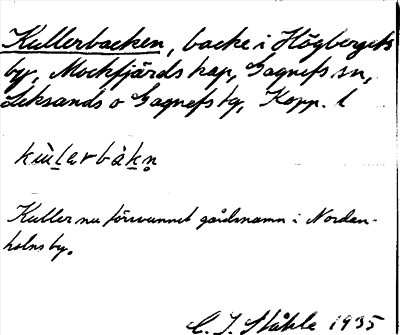 Kullerbacken, backe i Högbergets
by, Mockfjärds kap, Gagnefs sn,
Leksands o Gagnefs tg, Kopp. l
kùḷɛrbàkn̥
Kuller nu försvunnet gårdsnamn i Norden-
holns by.
C. I. Ståhle 1935